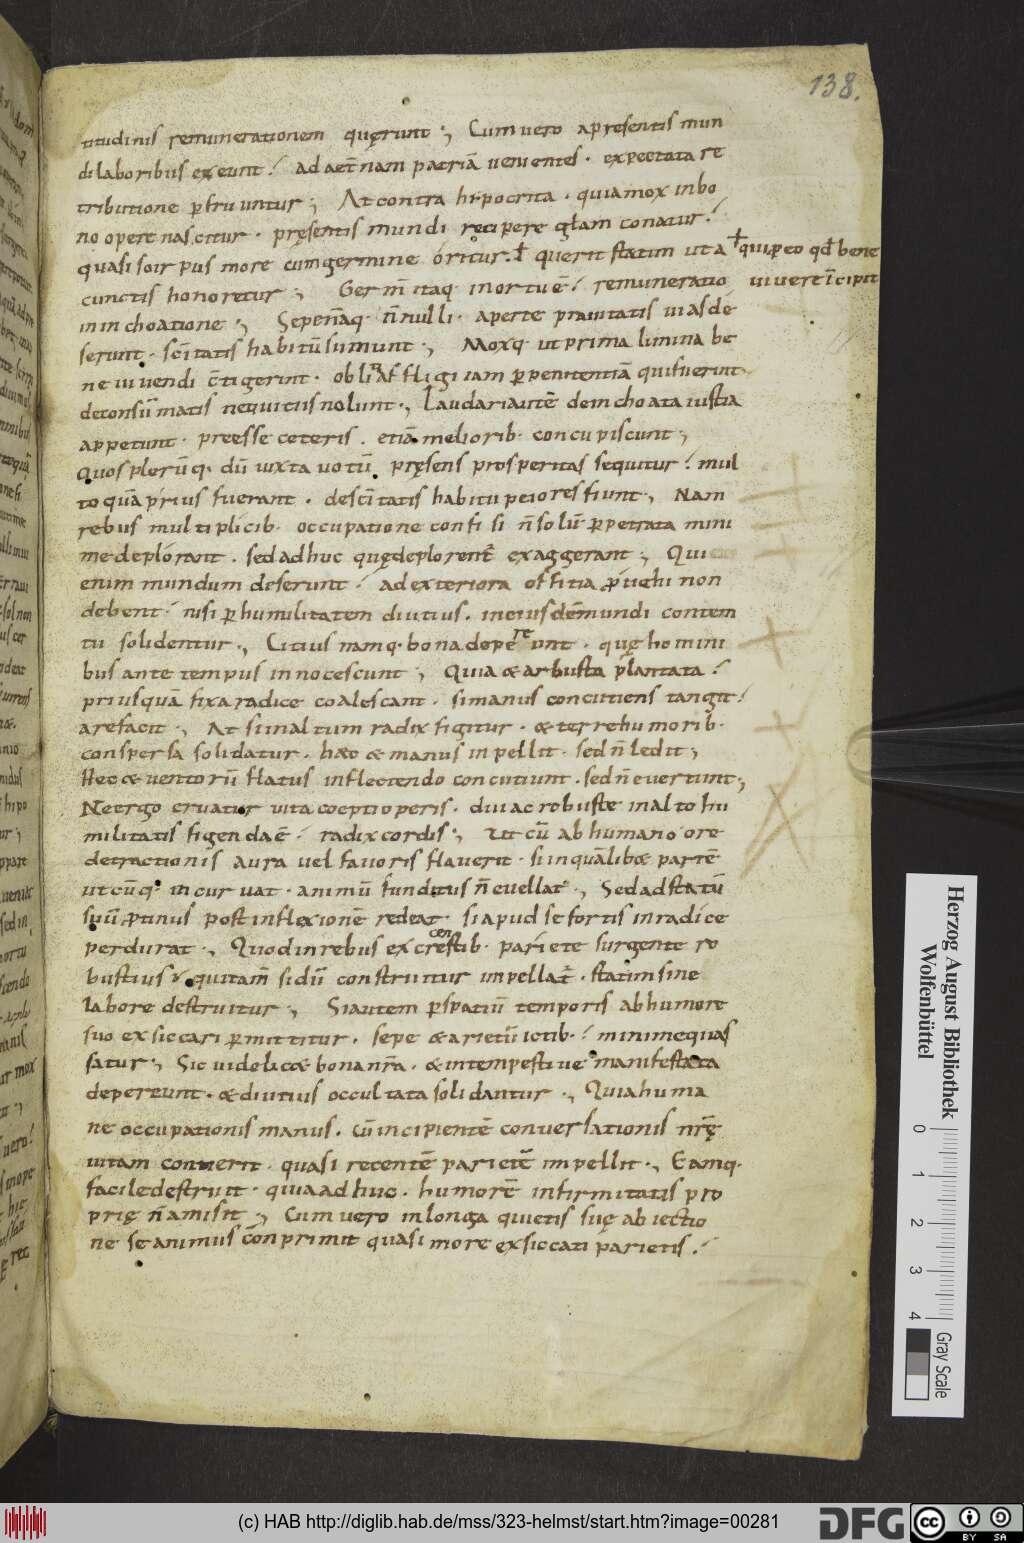 138.
titudinis remunerationem quęrunt ; Cum vero apresentis mun
dilaboribus exeunt . ad aet̄nam patriā venientes . expectata re
tributione ꝑfruuntur ; At contra hipocrita . quia mox inbo
no opere nascitur . pręsentis mundi recipere gl̄am conatur .
quasi scirpus more cum germine oritur . querit statim ut a
qui, eo qd̄ bene
cunctis honoretur ; Germ̄ itaq. in ortu ē . remuneratio
vivere īcipit
in inchoatione ; Sepen̄aq. n̄nulli . aperte pravitatis vias de
serunt . sc̄itatis habitū sumunt ; Moxq. ut prima limina be
ne vivendi c̄tigerint . iam ꝑ penitentiā qui fuerint
nequitiis nolunt ; Laudari autē de inchoata iustia
appetunt . preesse ceteris . etiā meliorib. concupiscunt ;
Quos plerūq. dū iuxta votū pręsens prosperitas sequitur . mul
to quā prius fuerant . desc̄itatis habitu peiores fiunt ; Nam
rebus multiplicib. occupatione confisi n̄ solū ꝑpetrata mini
me deplorant . sed adhuc quę deplorent exaggerant ; Qui
enim mundum deserunt . ad exteriora officia non
debent . nisi ꝑ humilitatem diutius . in eiusdē mundi contem
tu solidentur ; Citius namq. bona depereunt . quę homini
bus ante tempus innotescunt ; Quia & arbusta plantata .
priusquā fixa radice coalescant . si manus concutiens tangit .
arefacit ; At si inaltum radix figitur . & terre humorib.
conspersa solidatur . hāc & manus inpellit . sed n̄ ledit ;
Hec & ventorū flatus inflectendo concutiunt . sed n̄ evertunt ;
Ne ergo eruatur vita coepti operis . diu ac robuste in alto hu
militatis figenda ē . radix cordis ; Ut cū ab humano ore
detractionis aura vel favoris flaverit . si in quālib& partē
utcūq. incurvat . animū funditus n̄ evellat ; Sed ad statū
suū ꝓtinus post inflexionē redeat . si apud se fortis in radice
perdurat ; Quod in rebus excrescentib. pariete surgente ro
bustius . qui tam̄ si dū construitur inpellat̄ . statim sine
labore destruitur ; Si autem ꝑ spatiū temporis ab humore
suo exsiccari ꝑmittitur . sepe & arietū ictib. minime quas
satur ; Sic videlic& bona nr̄a . & intempestive manifestata
depereunt . & diutius occultata solidantur ; Quia huma
ne occupationis manus . cū incipientē conversationis nr̄ę
vitam converit . quasi recentē parietē inpellit ; Eamq.
facile destruit . quia adhuc . humorē infirmitatis pro
prię n̄ amisit ; Cum vero in longa quietis suę abiectio
ne se animus conprimit quasi more exsiccati parietis .
Herzog August Bibliothek
Wolfenbüttel
0 1 2 3 4
Gray Scale
(c) HAB http://diglib.hab.de/mss/323-helmst/start.htm?image=00281
DFG
cc BY SA